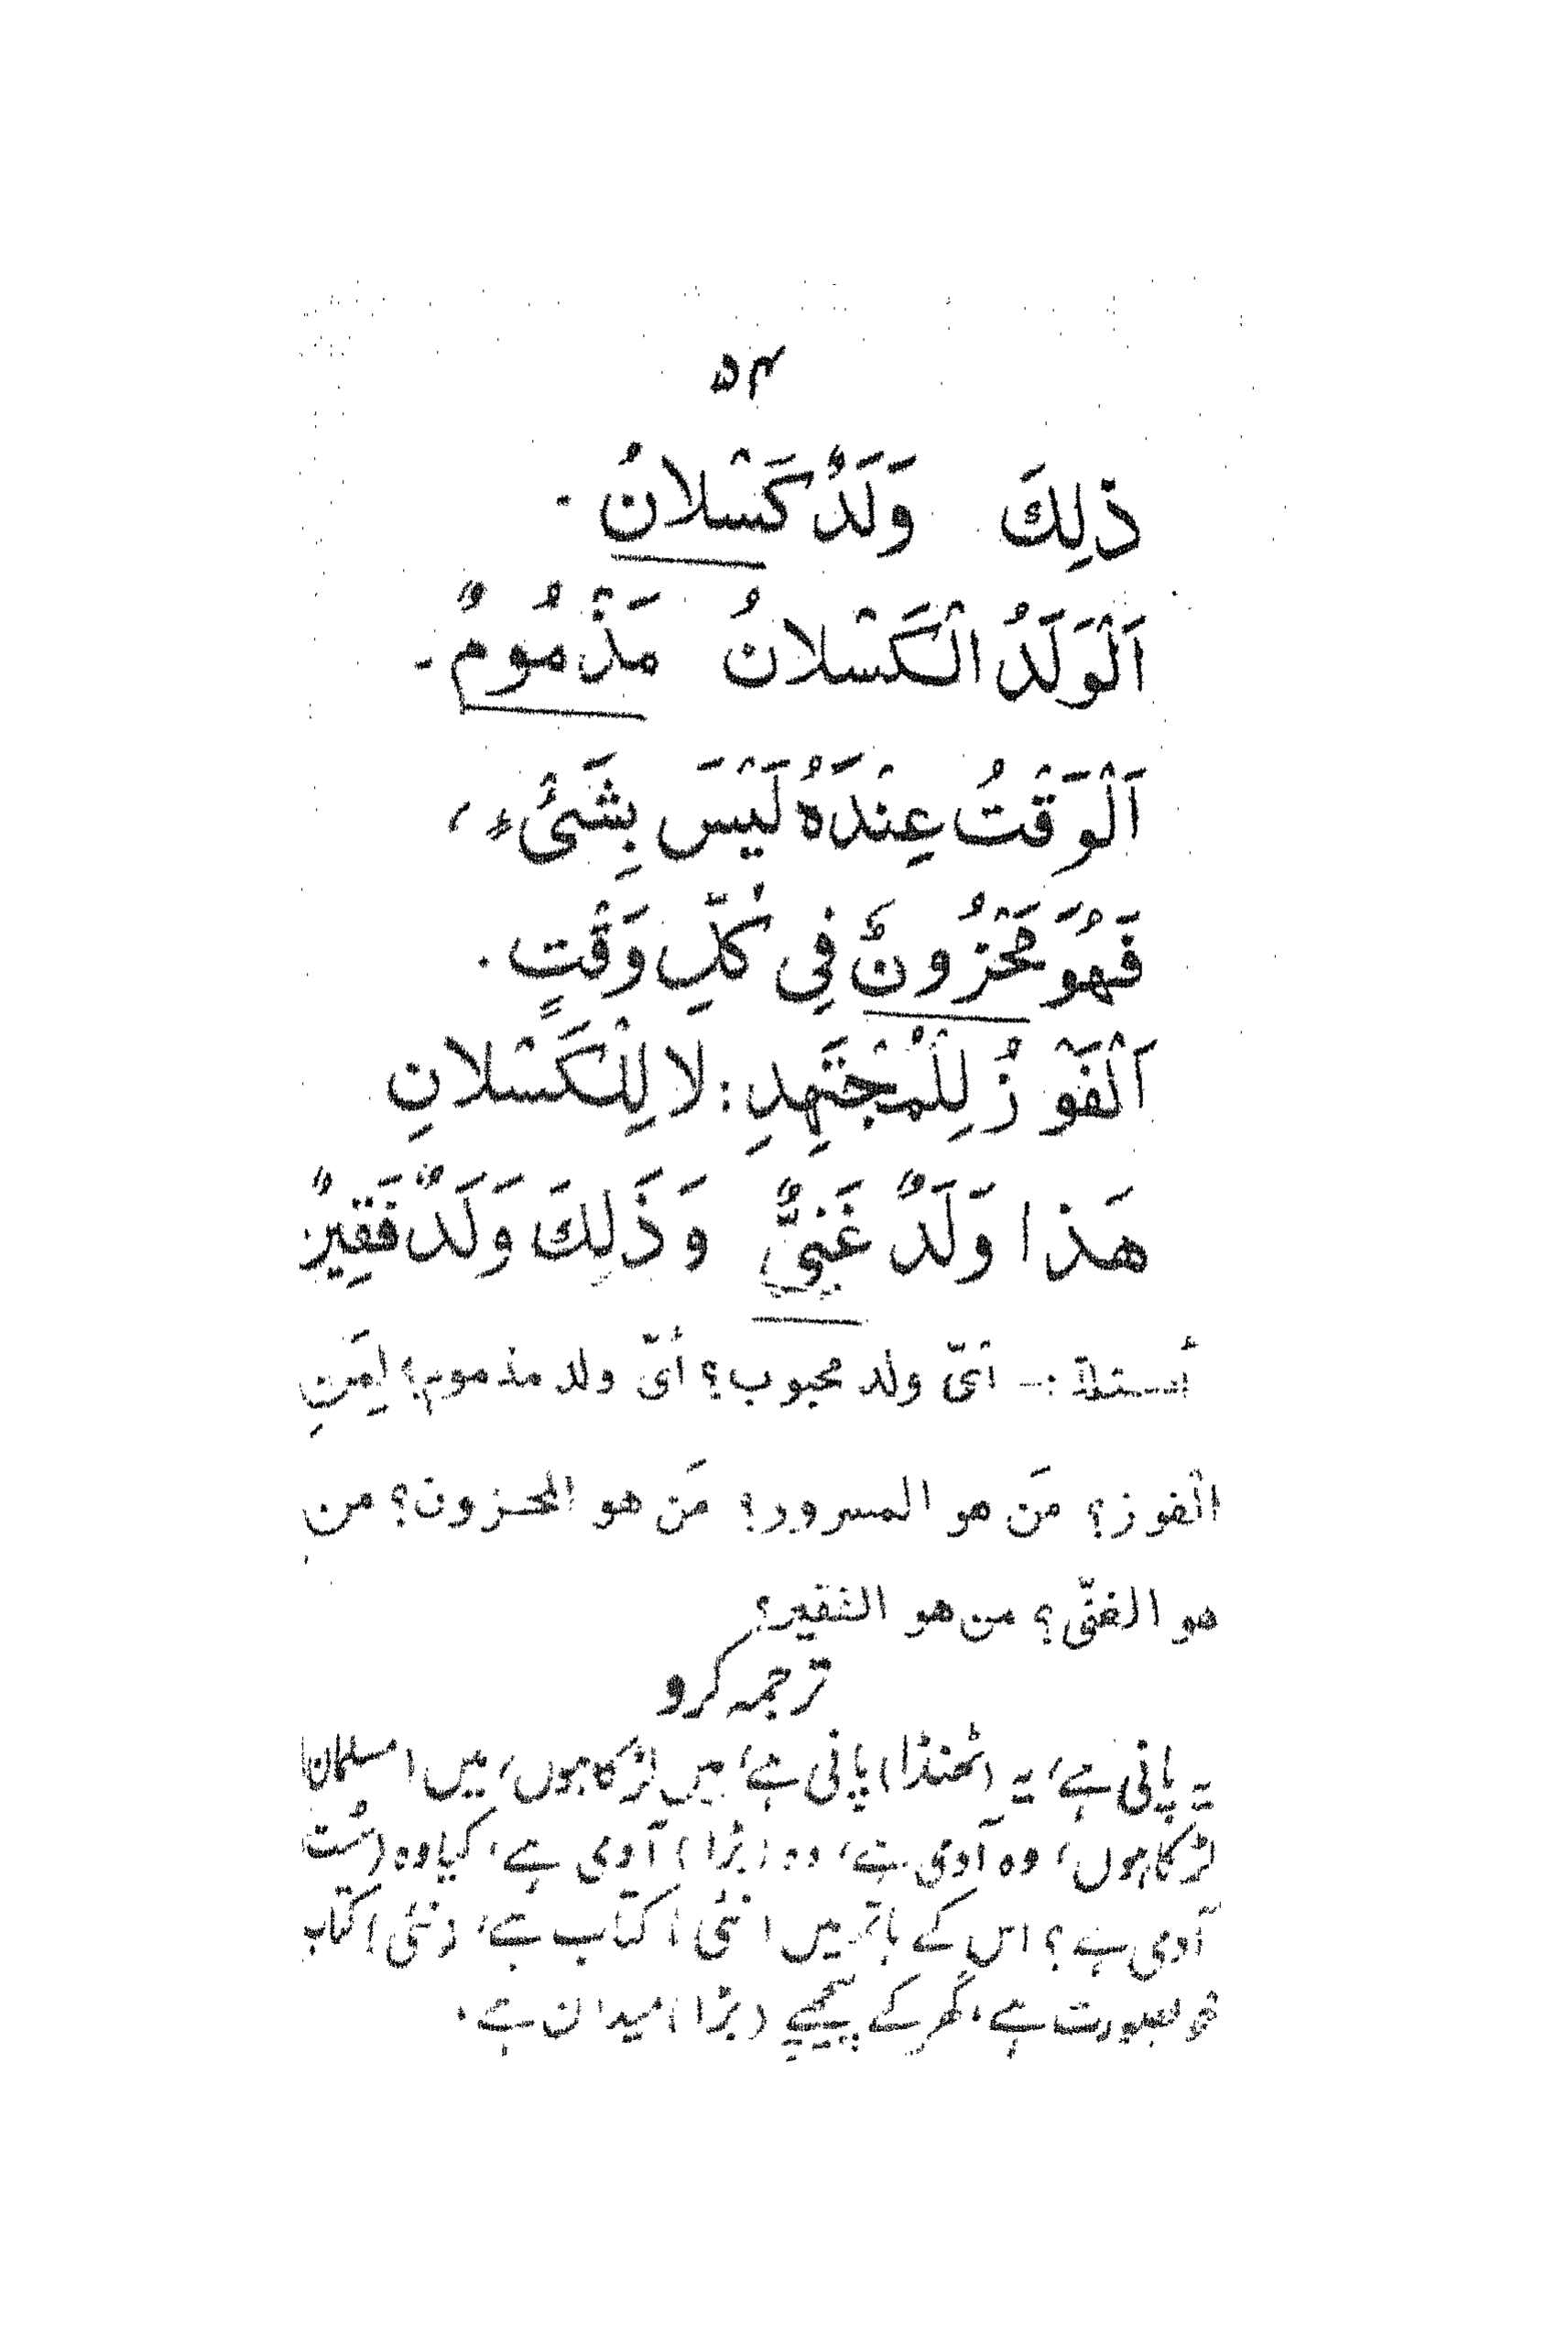 ۵۴
ذٰلِكَ وَلَدٌ كَسْلَانُ۔
اَلْوَلَدُ الْكَسْلَانُ مَذْمُومٌ۔
اَلْوَقْتُ عِنْدَهُ لَيْسَ بِشَىْءٍ،
فَهُوَ مَحْزُونٌ فِي كُلِّ وَقْتٍ۔
اَلْفَوْزُ لِلْمُجْتَهِدِ: لَا لِلْكَسْلَانِ
هَذَا وَلَدٌ غَنِيٌّ وَذَلِكَ وَلَدٌ فَقِيرٌ
أسئلة :— أىّ ولد محبوب؟ أىّ ولد مذموم؟ لِمَنِ
الفوز؟ مَن هو المسرور؟ مَن هو المحزون؟ من
هو الغنىّ؟ من هو الفقير؟
ترجمہ کرو
یہ پانی ہے، یہ (ٹھنڈا) پانی ہے، میں لڑکا ہوں، میں (مسلمان)
لڑکا ہوں، وہ آدمی ہے، وہ (بڑا) آدمی ہے، کیا وہ (سُست)
آدمی ہے؟ اس کے ہاتھ میں (نئی) کتاب ہے، (نئی) کتاب
خوبصورت ہے، گھر کے پیچھے (بڑا) میدان ہے۔